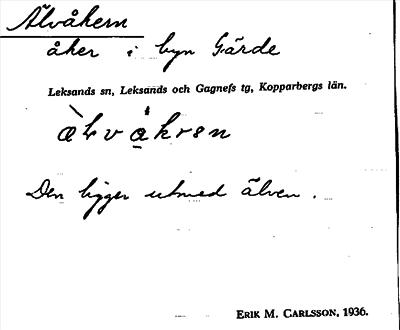 Älvåkern
åker i byn Gärde
Leksands sn, Leksands och Gagnefs tg, Kopparbergs län.
Den ligger utmed älven.
ERIK M. CARLSSON, 1936.